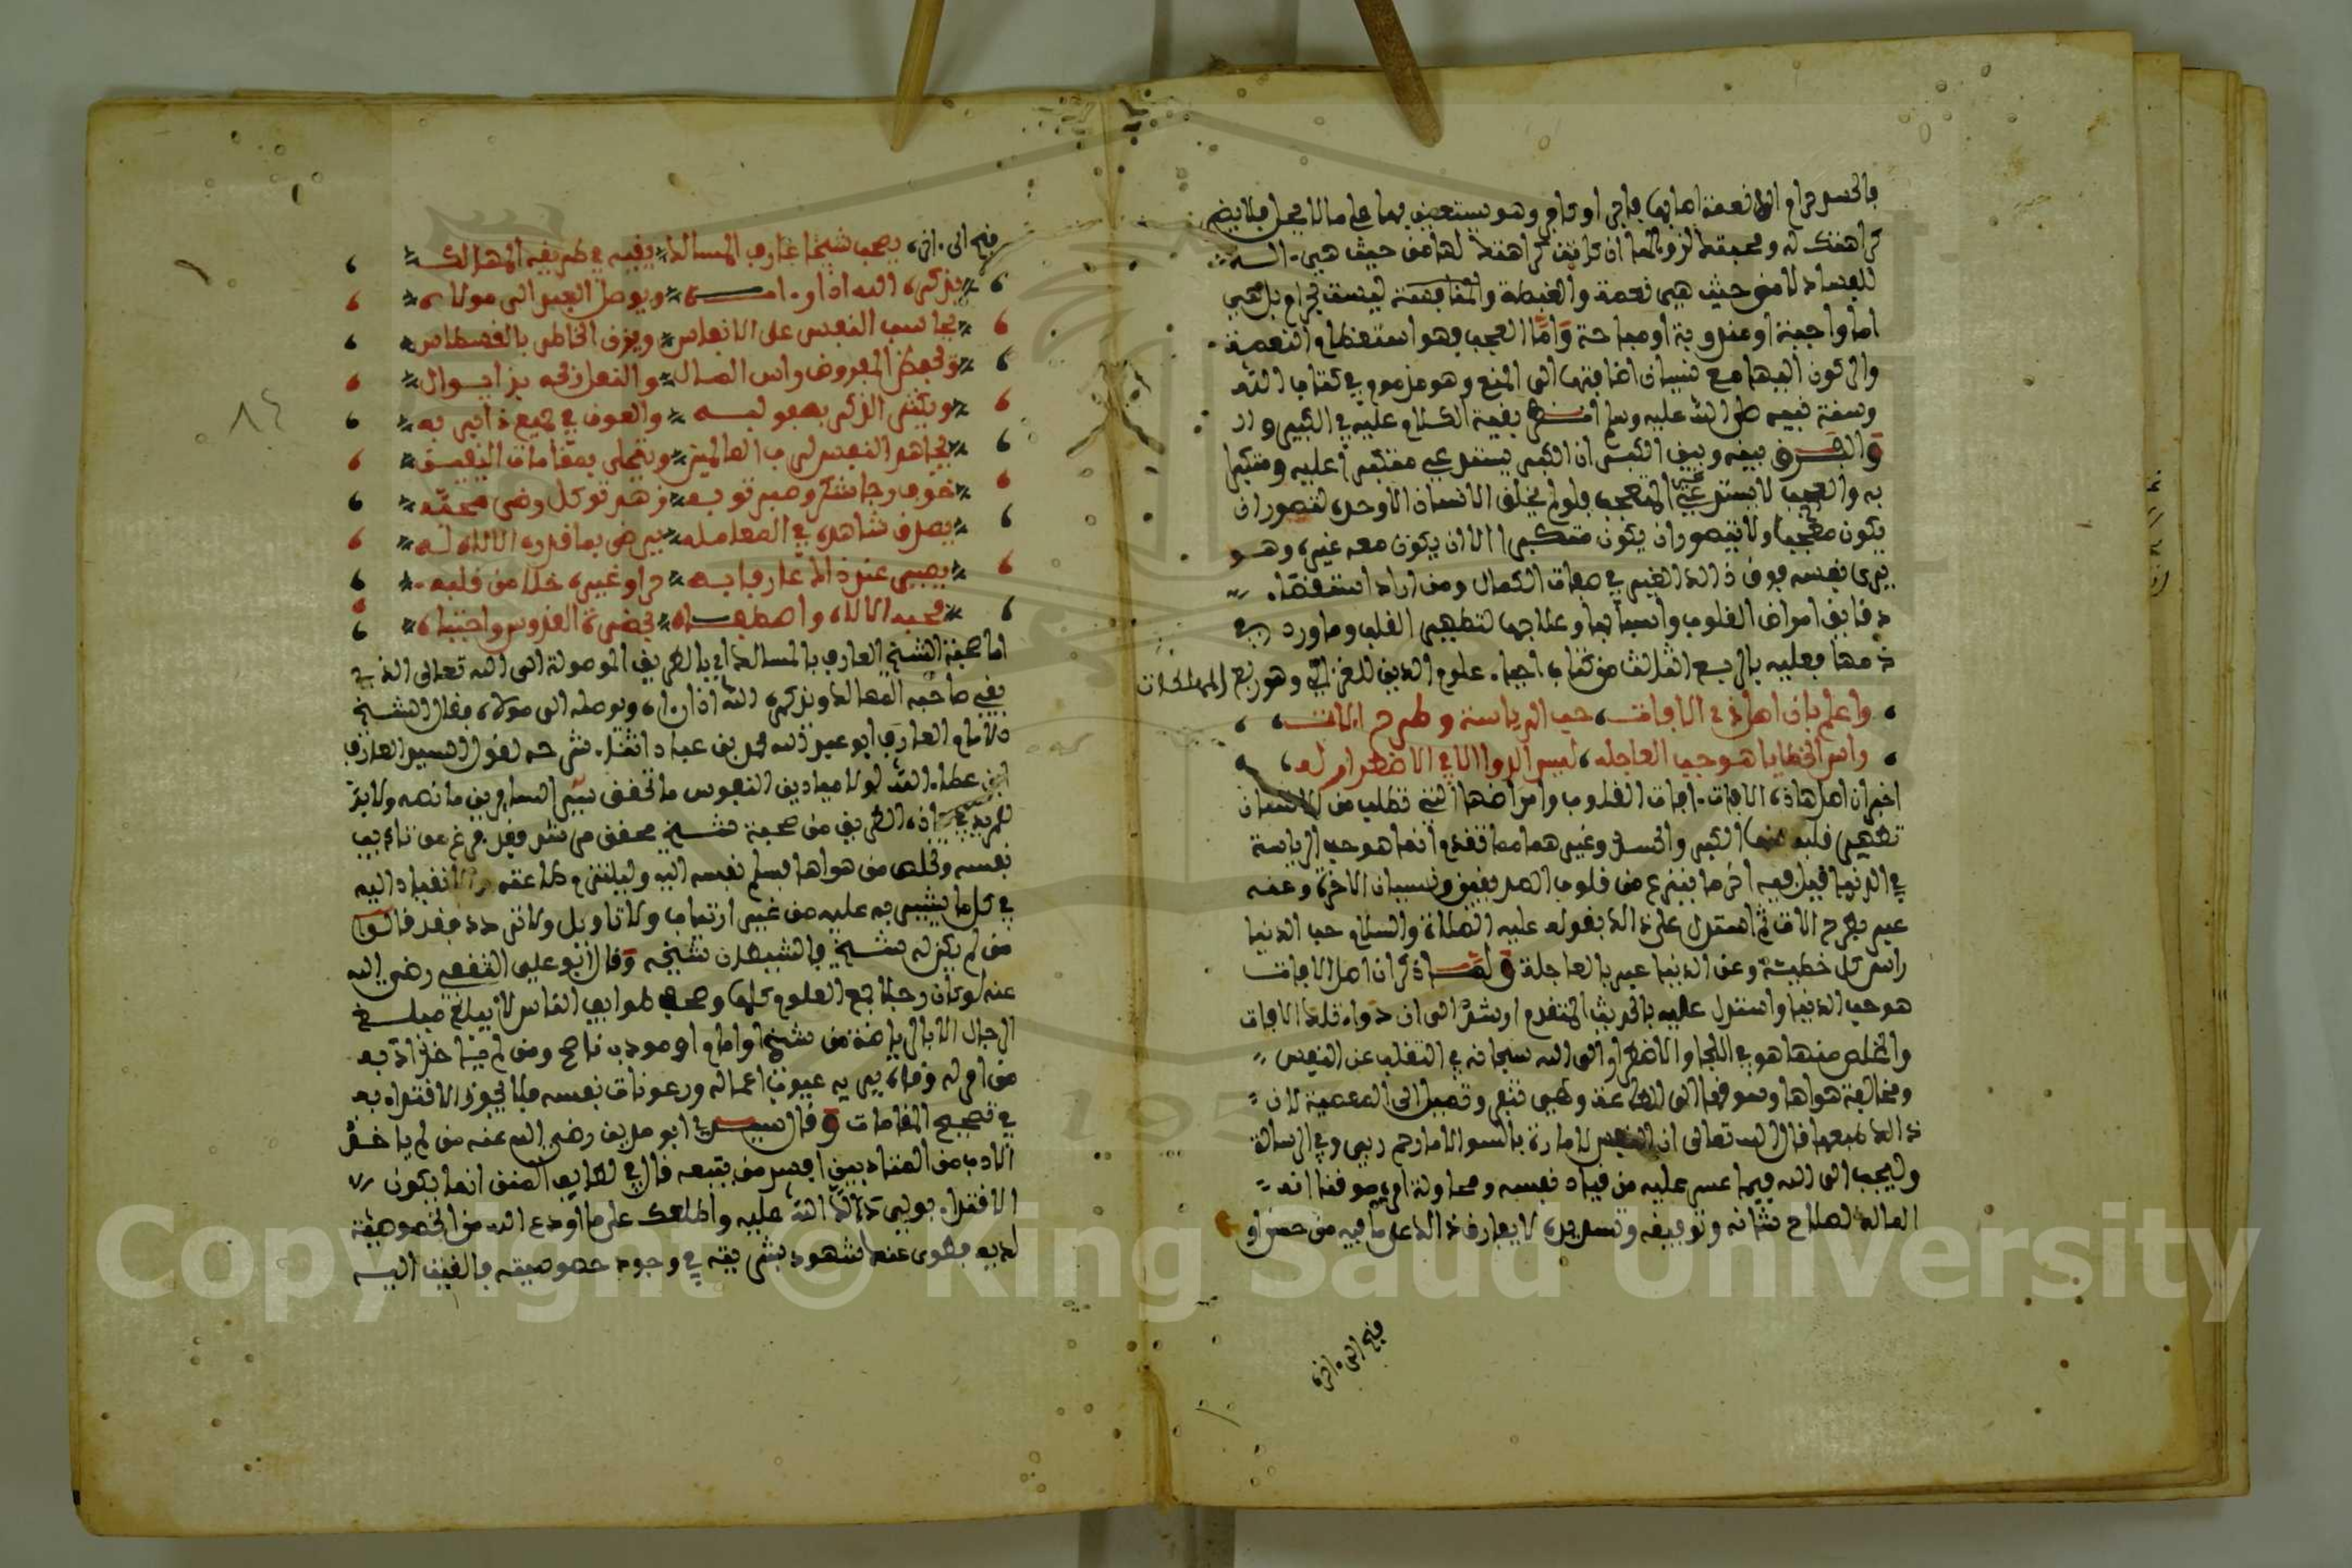 فالحسد حرام الا نعمة اصابها فاجر او كافر وهو يستعين بها على ما لا يحل فلا يضر
كراهتك له ومحبتك لزوالها ان كانت كراهتك لها من حيث هي ءالة
للفساد لا من حيث هي نعمة والغبطة والمنافسة ليست بحرام بل هي
اما واجبة او مندوبة او مباحة وأما العجب فهو استعظام النعمة
والركون اليها مع نسيان اضافتها الى المنعم وهو مذموم في كتاب الله
وسنة نبيه صلى الله عليه وسلم بقية الكلام عليه في الكبير
والفرق بينه وبين الكبر ان الكبر يستدعي متكبرا عليه ومتكبرا
به والعجب لا يستدعي غير المعجب فلو لم يخلق الانسان الا وحده لتصور ان
يكون معجبا ولا يتصور ان يكون متكبرا الا ان يكون معه غيره وهو
يرى نفسه فوق ذالك الغير في صفات الكمال ومن اراد استقصاء
دقائق امراض القلوب واسبابها وعلاجها لتطهير القلب وما ورد في
ذمها فعليه بالربع الثالث من كتاب احياء علوم الدين للغزالي وهو ربع المهلكات
واعلم بان اصل ذي الافات حب الرياسة وطرح الاتت
راس الخطايا هو حب العاجله ليس الدوا الا في الاضطرار له
اخبر ان اصل هاذه الافات افات القلوب وامراضها التي تطلب من الانسان
تطهير قلبه منها الكبر والحسد وغيرهما مما تقدم انما هو حب الرياسة
في الدنيا قيل فيه اخر ما ينزع من قلوب الصديقين ونسيان الاخرة وعنه
عبر بطرح الات ثم استدل على ذالك بقوله عليه الصلاة والسلام حب الدنيا
راس كل خطيئة وعن الدنيا عبر بالعاجلة ولما ذكر ان اصل الافات
هو حب الدنيا واستدل عليه بالحديث المتقدم ارشد الى ان دواء تلك الافات
والتخلص منها هو في اللجا والاضطرار الى الله سبحانه في التغلب عن النفس
ومخالفة هواها وسوقها الى الطاعة وهي تنفر وتميل الى المعصية لان
ذالك طبعها قال الله تعالى ان النفس لامارة بالسوء الا ما رحم ربي وفي الرسالة
وليجب الى الله فيما عسر عليه من قياد نفسه ومحاولة امره موقنا انه
المالك لصلاح شانه وتوفيقه وتسديده لا يفارق ذالك على ما فيه من حسن او
قبيح الى ءاخره
قبيح الى ءاخره يصحب شيخا عارف المسالك يقيه في طريقه المهالك
يذكره الله اذا رءاه ويوصل العبد الى مولاه
يحاسب النفس على الانفاس ويزن الخاطر بالقسطاس
ويحفظ المفروض راس المال والنفل ربحه به يوالي
ويكثر الذكر بصفو لبه والعون في جميع ذا بربه
يجاهد النفس لرب العالمين ويتحلى بمقامات اليقين
خوف رجا شكر وصبر توبه زهد توكل رضى محبه
يصدق شاهده في المعامله يرضى بما قدره الالاه له
يصير عند ذاك عارفا به حرا وغيره خلا من قلبه
فحبه الالاه واصطفاه لحضرة القدوس واجتباه
اما صحبة الشيخ العارف بالمسالك اي بالطريق الموصولة الى الله تعالى الذي
يقي صاحبه المهالك ويذكره الله اذا رءاه ويوصله الى مولاه فقال الشيخ
الامام العارف ابو عبد الله محمد بن عباد اثناء شرحه لقول السيد العارف
ابن عطاء الله لولا ميادين النفوس ما تحقق سير السايرين ما نصه ولا بد
للمريد في هاذه الطريق من صحبة شيخ محقق مرشد قد فرغ من تاديب
نفسه وتخلص من هواها فليسلم نفسه اليه وليلتزم طاعته والانقياد اليه
في كل ما يشير به عليه من غير ارتياب ولا تاويل ولا تردد فقد قالوا
من لم يكن له شيخ فالشيطان شيخه وقال ابو علي الثقفي رضي الله
عنه لو ان رجلا جمع العلوم كلها وصحب طوايف الناس لا يبلغ مبلغ
الرجال الا بالرياضة من شيخ او امام او مودب ناصح ومن لم ياخذ ادبه
من امر له وناه يريه عيوب اعماله ورعونات نفسه فلا يجوز الاقتداء به
في تصحيح المقامات وقال سيدي ابو مدين رضي الله عنه من لم ياخذ
الادب من المتادبين افسد من يتبعه قال في لطايف المنن انما يكون
الاقتداء بولي دلك الله عليه واطلعك على ما اودع الله من الخصوصية
لديه فطوى عنك شهود بشريته في وجود خصوصيته فالقيت اليه